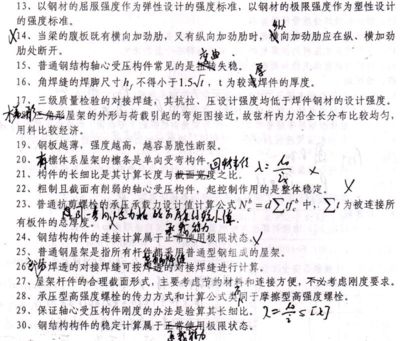 13、以钢材的屈服强度作为弹性设计的强度标准，以钢材的极限强度作为塑性设计
的强度标准。
14、当梁的腹板既有横向加劲肋，又有纵向加劲肋时，横向加劲肋应在纵、横加劲
肋处断开。
15、普通钢结构轴心受压构件常见的是失稳。
16、角焊缝的焊脚尺寸 hf 不得小于 1.5√t，t 为较薄焊件的厚度。
17、三级质量检验的对接焊缝，其抗拉、压设计强度均低于焊件钢材的设计强度。
18、三角形屋架的外形与荷载引起的弯矩图接近，故弦杆内力沿全长分布比较均匀，
用料比较经济。
19、钢板越薄，强度越高，越容易脆性断裂。
20、有檩体系屋架的檩条是单向受弯构件。
21、构件的长细比是其计算长度与截面宽度之比。 回转半径 λ=
22、粗制且截面有削弱的轴心受压构件，起控制作用的是整体稳定。 ×
23、普通抗剪螺栓的承压承载力设计值计算公式 N=d∑tf 中，∑t 为被连接所
有板件的总厚度。
24、钢结构构件的连接计算属于正常使用极限状态。
25、普通钢屋架是指所有杆件都采用普通型钢组成的屋架。
26、的对接焊缝可按的对接焊缝进行计算。
27、屋架杆件的合理截面形式，主要考虑节约材料和连接方便，不必考虑刚度要求。
28、承压型高强度螺栓的传力方式和计算公式同于摩擦型高强度螺栓。
29、保证轴心受压构件刚度的办法是验算其长细比。 λ= ≤[λ]
30、钢结构构件的稳定计算属于正常使用极限状态。
承载能力